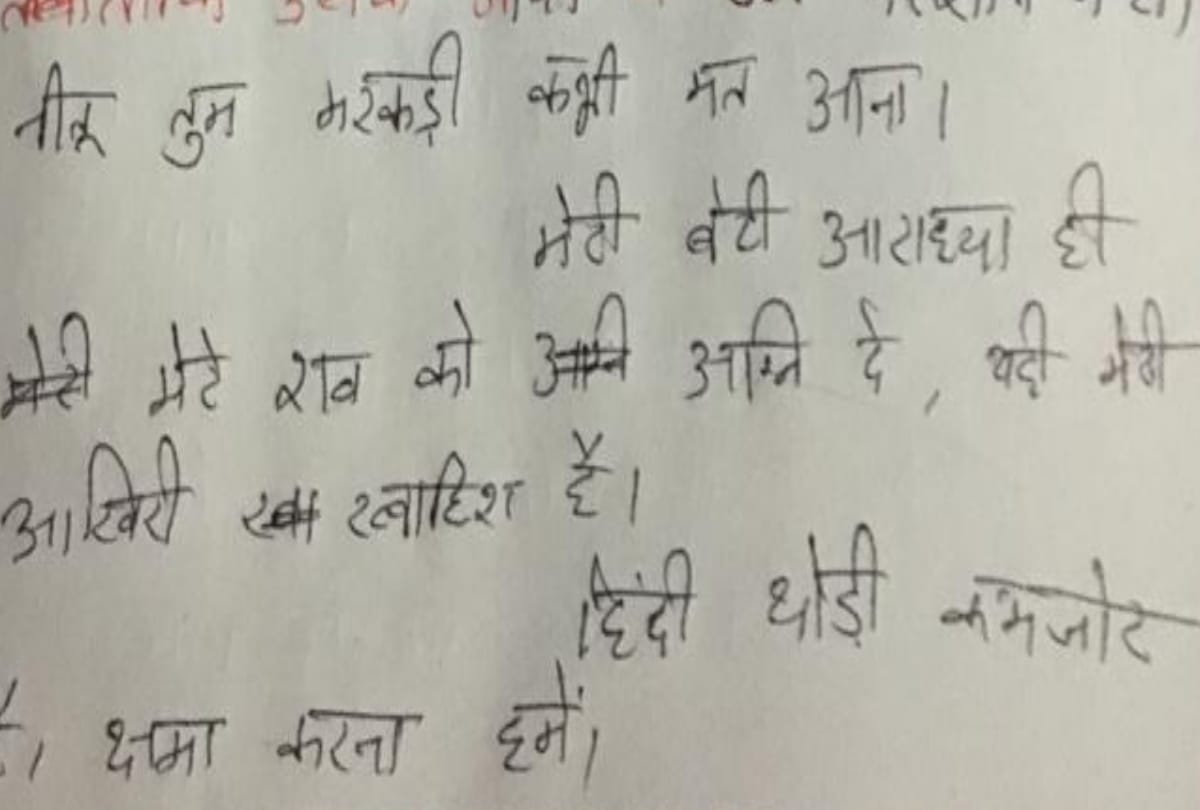 नीतू तुम मरकड़ी कभी मत आना।
मेरी बेटी आराध्या ही
मेरे शव को अग्नि दे, यही मेरी
आखिरी ख्वाहिश हैं।
हिंदी थोड़ी कमजोर
है। क्षमा करना हमें।